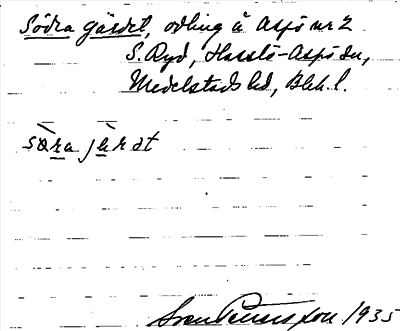 Södra gärdet, odling å Aspö nr 2
S. Ryd, Hasslö-Aspö sn,
Medelstads hd, Blek. l.
sòra jæ̀rat
Sven Petersson 1935